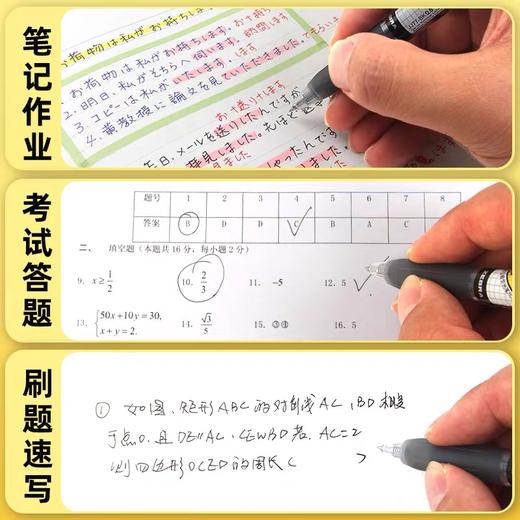 笔记作业
お荷物は私がお持ちします。
1. お荷物は私がお持ちします。お持ち
2. 明日、私がそちらへ伺います。訪問します
3. コピーは私がいたします。します
4. 黄教授に論文を見ていただきました。
お送りします
メールを送りしたんですが
拝見しました。
考试答题
题号 1 2 3 4 5 6 7 8
答案 B D D C B A C
二、 填空题(本题共16分,每小题2分)
9. x≥1/2 10. 2/3 11. -5 12. 5
13. {50x+10y=30, x+y=2. 14. √3/5 15. ③④ 16. 5
刷题速写
① 如图,矩形ABC的对角线AC,BD相
于点O.且DE∥AC, CE BD若 AC=2
则四边形OCED的周长(   )
ZEBRA